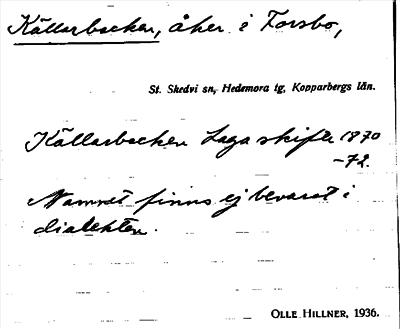 Källarbacken, åker i Forsbo,
St. Skedvi sn, Hedemora tg, Kopparbergs län.
Källarbacken Laga skifte 1870
-72.
Namnet finns ej bevarat i
dialekten.
OLLE HILLNER, 1936.